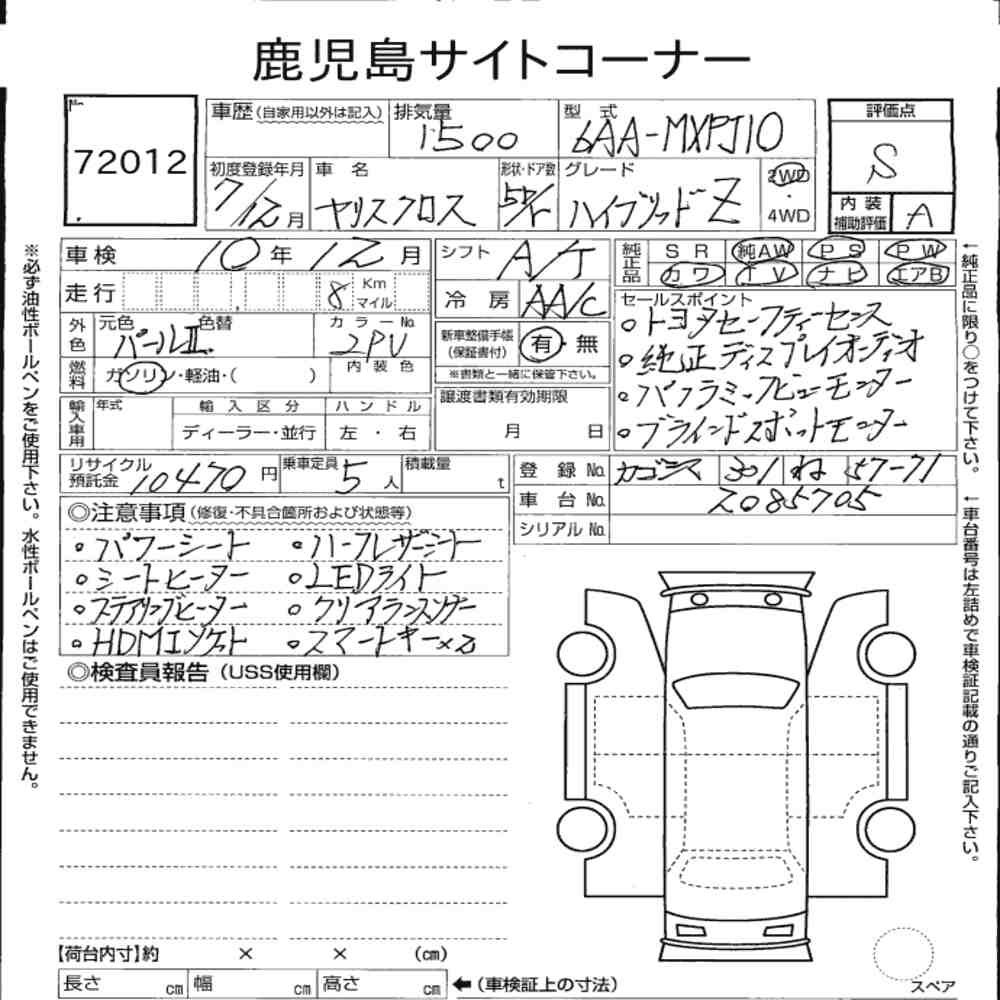 鹿児島サイトコーナー
72012
車歴(自家用以外は記入)
排気量 1500
型式 6AA-MXPJ10
評価点 S
内装補助評価 A
初度登録年月 7/12月
車名 ヤリスクロス
形状・ドア数 5D/
グレード ハイブリッドZ
2WD
4WD
車検 10年12月
シフト A/
純正品 SR 純AW PS PW
カワ TV ナビ エアB
走行 8 Km マイル
冷房 AA/C
外色 元色 パールⅡ 色替
カラーNo. 2PU
内装色
新車整備手帳(保証書付) 有・無
※書類と一緒に保管下さい。
燃料 ガソリン・軽油・( )
セールスポイント
○トヨタセーフティーセンス
○純正ディスプレイオーディオ
○パノラミックビューモニター
○ブラインドスポットモニター
輸入車用 年式 輸入区分 ハンドル
ディーラー・並行 左・右
譲渡書類有効期限
月 日
リサイクル預託金 10470円
乗車定員 5人
積載量 t
登録No. カゴシマ 301 ね 57-71
車台No. 2085705
シリアルNo.
◎注意事項(修復・不具合箇所および状態等)
○パワーシート ○ハーフレザーシート
○シートヒーター ○LEDライト
○ステアリングヒーター ○クリアランスソナー
○HDMIソケット ○スマートキー×2
◎検査員報告(USS使用欄)
【荷台内寸】約 × × (cm)
長さ cm 幅 cm 高さ cm ←(車検証上の寸法)
スペア
※必ず油性ボールペンをご使用下さい。水性ボールペンはご使用できません。
←純正品に限り○をつけて下さい。
←車台番号は左詰めで車検証記載の通りご記入下さい。